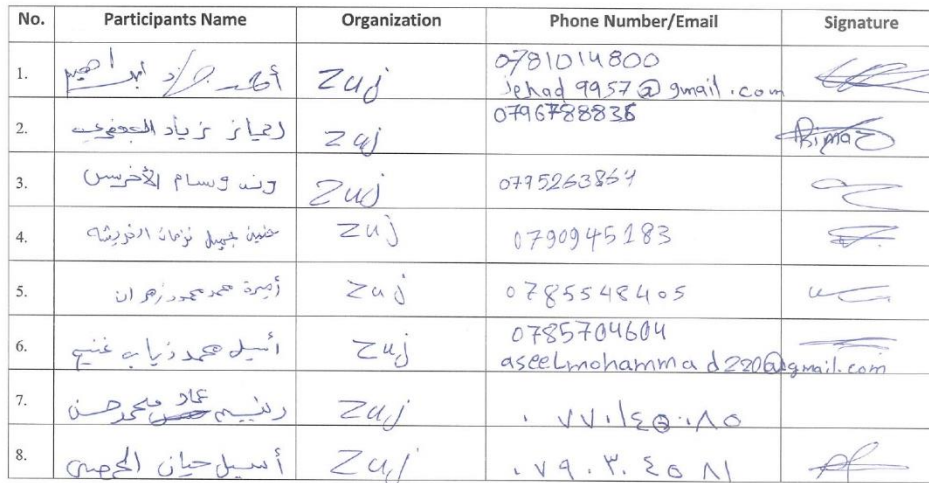 No. Participants Name Organization Phone Number/Email Signature
1. أحمد جهاد ابراهيم Zuj 0781014800
Jehad9957@gmail.com
2. ريماز زياد Zuj 0796788836 Rimaz
3. وسام الأخرس Zuj 0775263864
4. حنين جميل Zuj 0790945183
5. أميرة محمد محمود زهران Zuj 0785548405
6. أسيل محمد ذياب غنيم Zuj 0785704604
aseelmohammad220@gmail.com
7. عماد محمد حسن Zuj
8. أسيل حيان الحمصي Zuj ٠٧٩٠٣٠٤٥٨١